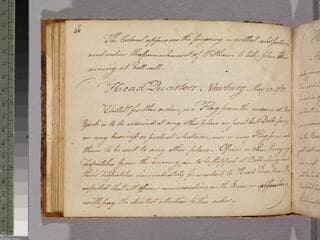 36
The Colonel approves the foregoing sentence and
and orders the punishment of to take place this
evening at Roll call.
Head Quarters Newburg May 10 1782
Untill further orders, no Flag from the enemy at New
York is to be received at any other place or post but Dobbs ferry
on any business or pretext whatever, nor is any Flag from
them to be sent to any other place. Officers or others bringing
dispatches from the enemy are to be stopped at Dobbs ferry and
their dispatches immediately forwarded to Head Quarters. It is
expected that all officers commanding on the lines or
will pay the strictest attention to this order.